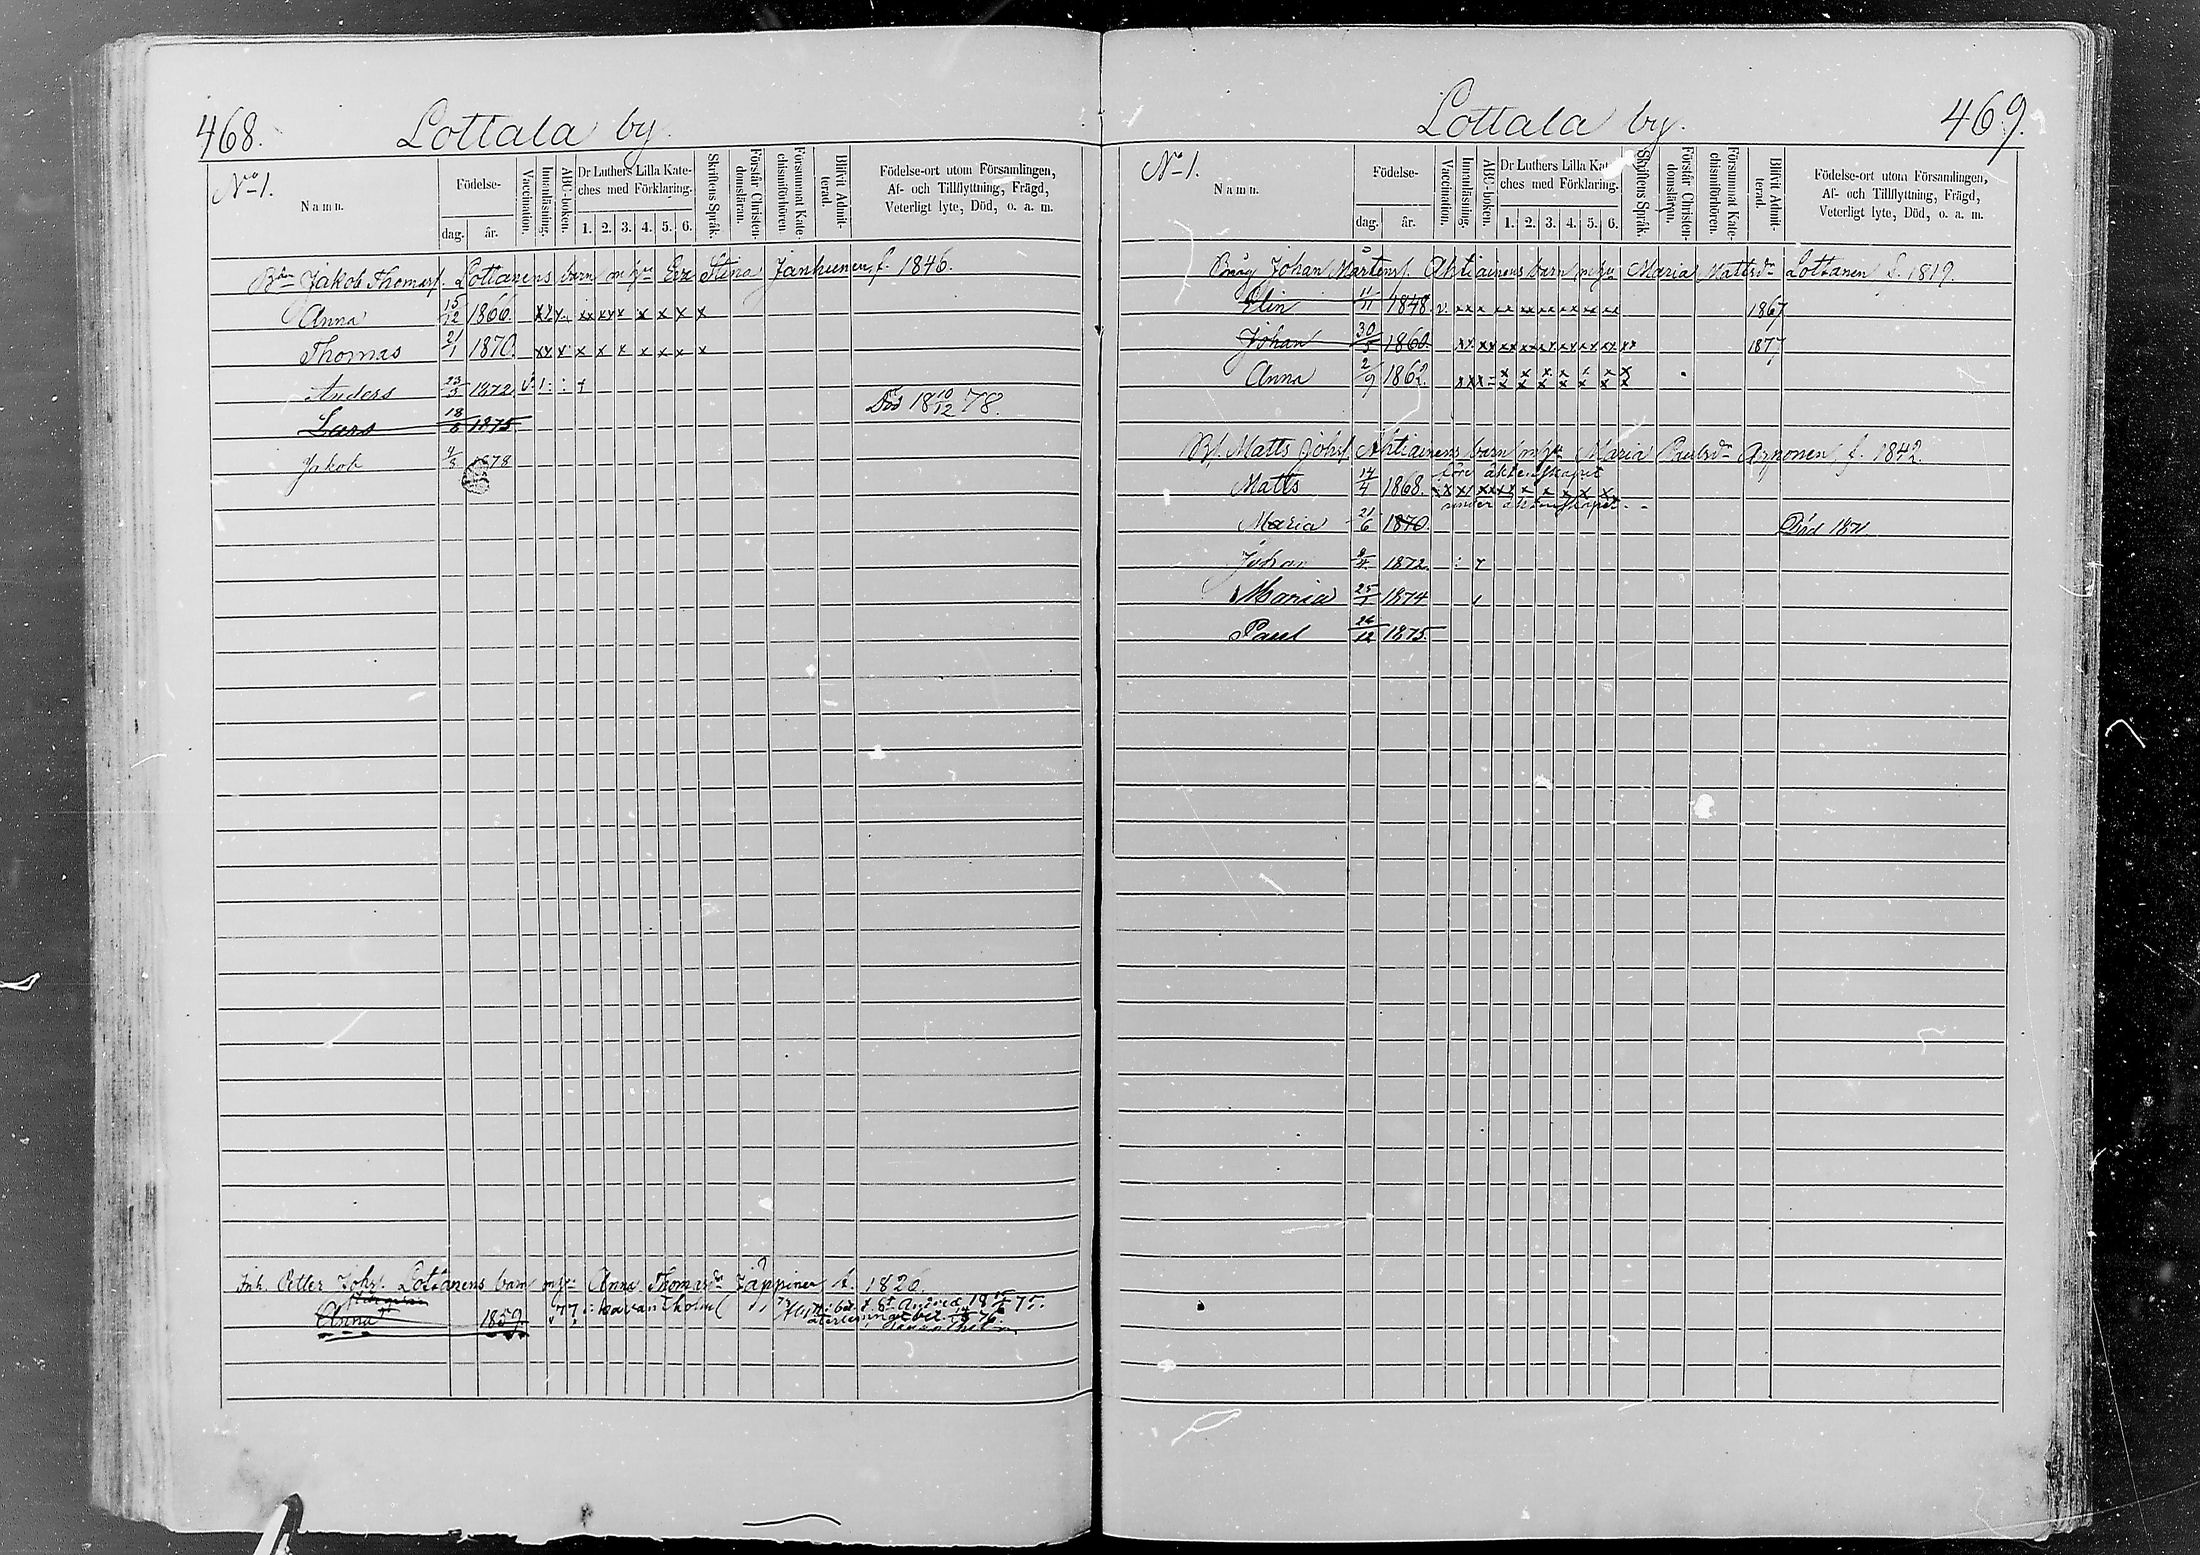 468.
Lottala by.
No 1.
Namn.
Födelse-
dag.
år.
Vaccination.
Innanläsning.
ABC-boken.
Dr Luthers Lilla Kate-
ches med Förklaring.
1. 2. 3. 4. 5. 6.
Skriftens Språk.
Förstår Christen-
domsläran.
Försummat Kate-
chismiförhören.
Blifvit Admit-
terad.
Födelse-ort utom Församlingen,
Af- och Tillflyttning, Frägd,
Veterligt lyte, Död, o. a. m.
Jakob Thomasf. Lottanens barn Eva Stina Janhunen, f. 1846.
Anna 15/12 1866. xx x. xx xx x x x x x
Thomas 21/1 1870. xx x x x x x x x x
Anders 23/3 1872
Lars 18/6 1875 Död 18 10/12 78.
Jakob 4/3 1878
Inh. Petter Johsf. Lottanens barn Anna Thomasdr Jäppinen f. 1820.
Anna 1859.
469.
Lottala by.
No 1.
Namn.
Födelse-
dag.
år.
Vaccination.
Innanläsning.
ABC-boken.
Dr Luthers Lilla Kate-
ches med Förklaring.
1. 2. 3. 4. 5. 6.
Skriftens Språk.
Förstår Christen-
domsläran.
Försummat Kate-
chismiförhören.
Blifvit Admit-
terad.
Födelse-ort utom Församlingen,
Af- och Tillflyttning, Frägd,
Veterligt lyte, Död, o. a. m.
Johan Mårtensf. Ahtiainens barn Maria Mattsdr Lottanen f. 1819.
Elin 11/11 1848. v. xxx xx xx xx xx xx xx 1867
Johan 30/5 1860 xx xx xx xx xx xx xx xx xx 1877
Anna 2/9 1862.
Matts Johsf. Ahtiainens barn Maria Paulsdr f. 1842.
före äktenskapet
Matts 14/4 1868.
under äktenskapet
Maria 21/6 1870. Död 1871.
Johan 1872.
Maria 25/1 1874
Paul 26/12 1875.